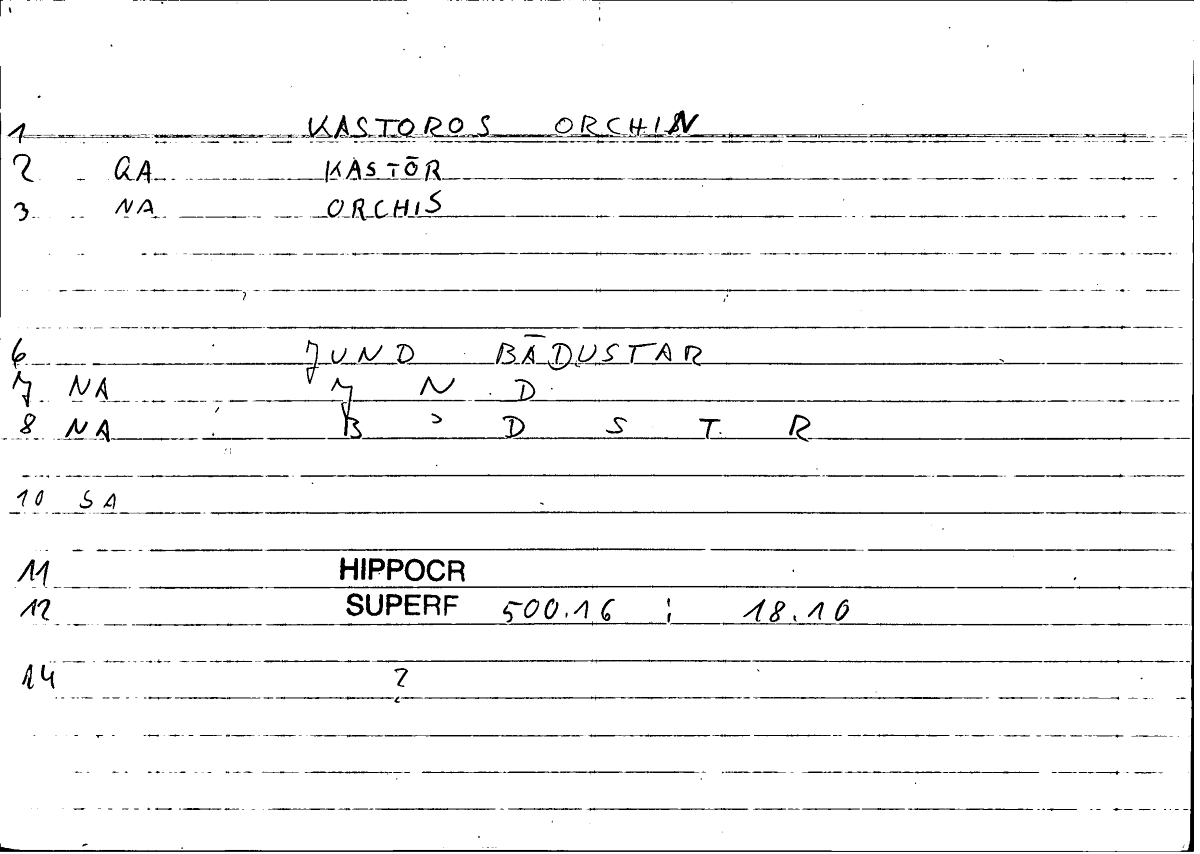 1 KASTOROS ORCHIN
2 QA KASTŌR
3 NA ORCHIS
6 JUND BĀDUSTAR
7 NA J N D
8 NA B ʾ D S T R
10 SA
11 HIPPOCR
12 SUPERF 500.16 ; 18.10
14 2